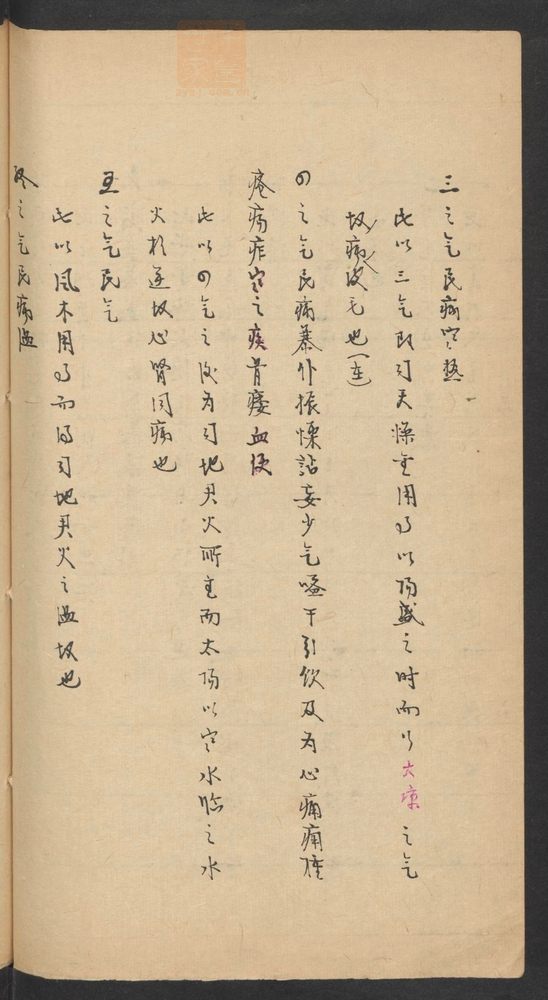 三之气民病寒热
此以三气即司天燥金用了以阳盛之时而以大凉之气
故病皮毛也(連)
四之气民病暴仆振慄詀妄少气嗌干引饮及为心痛痈肿
疮疡疟寒之疾骨痿血便
此以四气之后为司地君火所主而太阳以寒水临之水
火相逆故心肾同病也
五之气民气
此以风木用了而得司地君火之温故也
终之气民病温